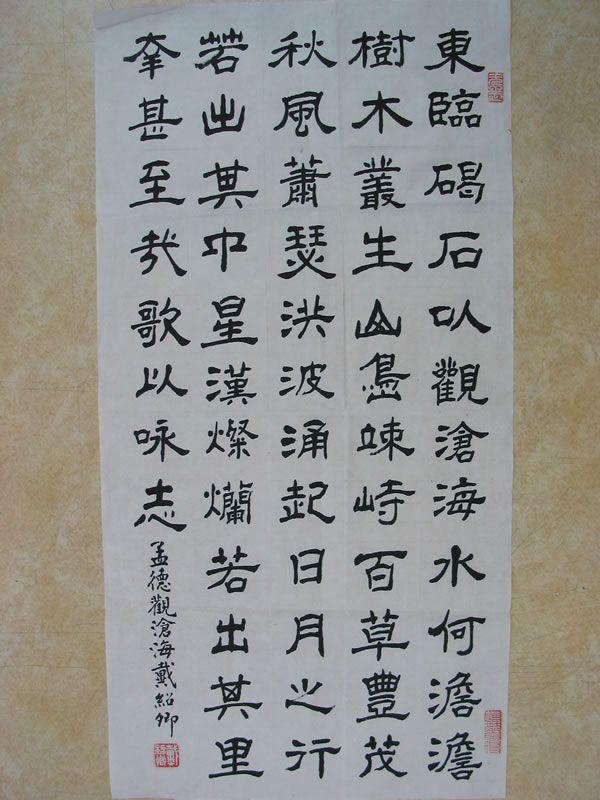 東臨碣石以觀滄海水何澹澹
樹木叢生山島竦峙百草豐茂
秋風蕭瑟洪波涌起日月之行
若出其中星漢燦爛若出其里
幸甚至哉歌以咏志
孟德觀滄海戴紹卿